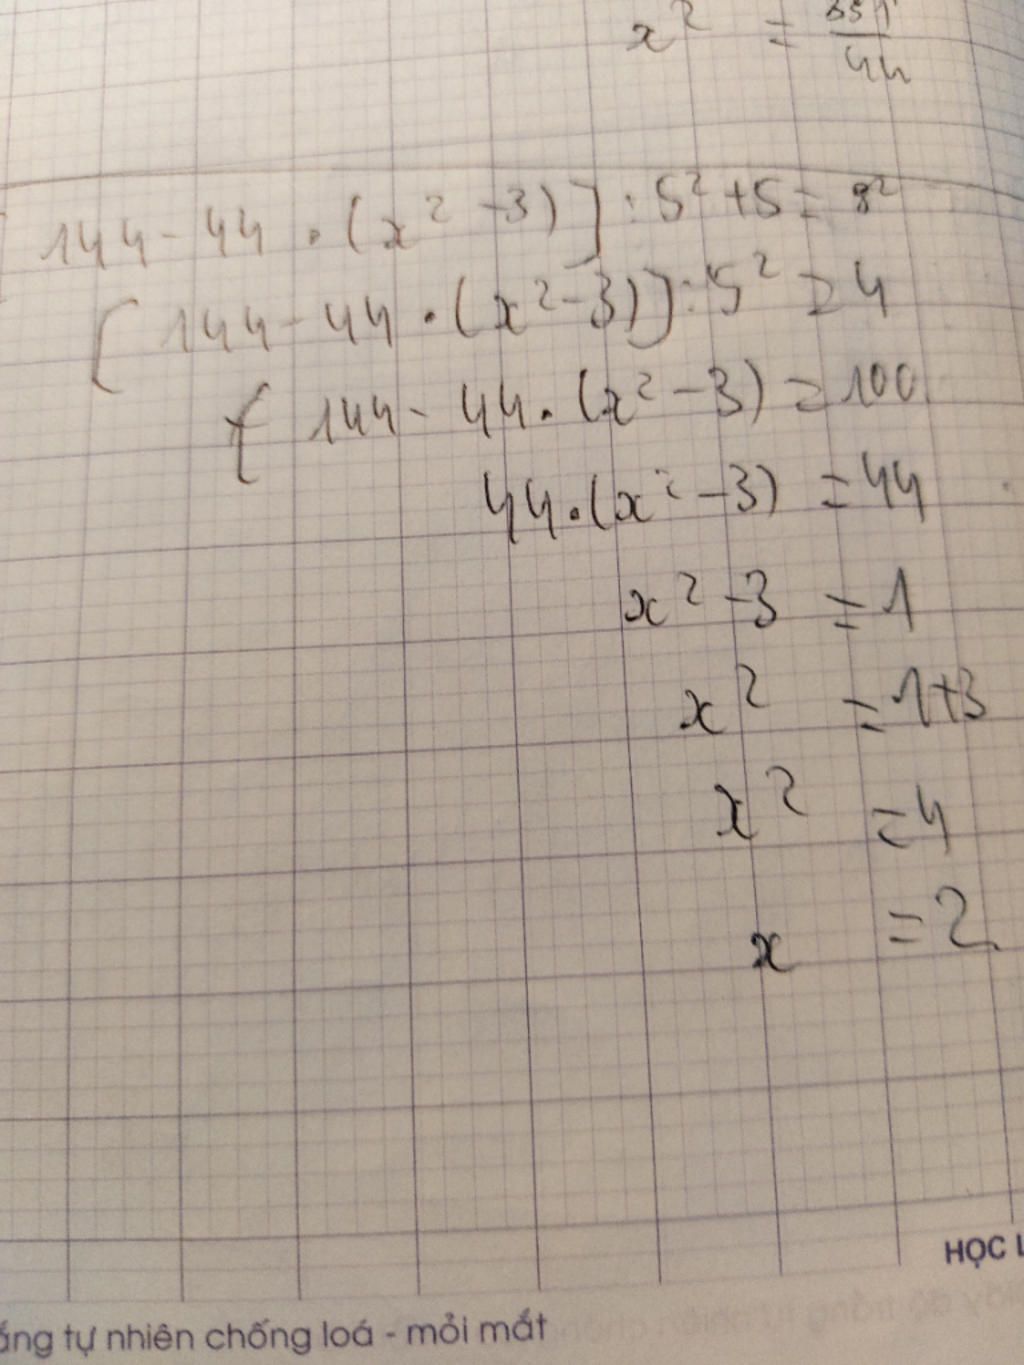 x² =
144 - 44 . (x² - 3)] : 5² + 5 = 8²
[144 - 44 . (x² - 3)] : 5² = 4
144 - 44 . (x² - 3) = 100
44 . (x² - 3) = 44
x² - 3 = 1
x² = 1 + 3
x² = 4
x = 2
HỌC
tự nhiên chống loá - mỏi mắt